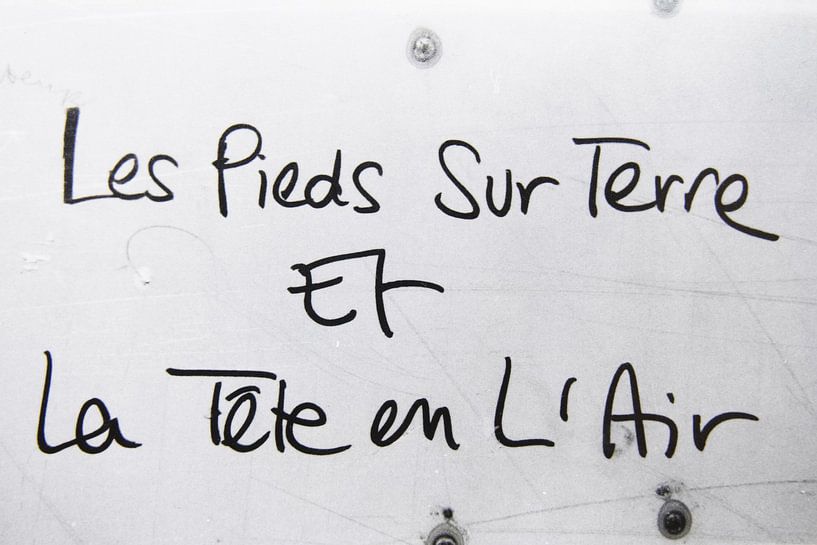 Les Pieds Sur Terre
Et
La Tête en L'Air